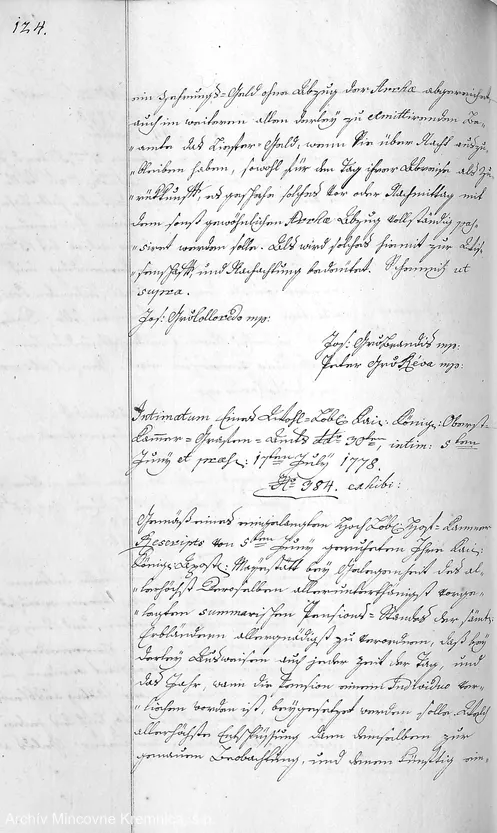 124.
ein Zehrungs-Geld ohne Abzug der Archa abgereichet,
auch im weiteren allen derley zu emittirenden Be-
amte das Liefer-Geld, wenn Sie über Nacht auszu-
bleiben haben, sowohl für den Tag ihrer Abreise als Zu-
rückkunft, es geschehe solches vor oder Nachmittag mit
dem sonst gewöhnlichen Archa Abzug vollständig pas-
siret werden solle. Als wird solches hiemit zur Wis-
senschaft, und Nachachtung bedeutet. Schemnitz ut
supra.
Jos: Gr: Colloredo mp:
Jos: Gr: Brandis mp:
Peter Gr: Réva mp:
Intimatum Eines Wohl-Löbl: Kai: König: Oberst-
Kammer-Grafen-Amts ddto 30ten, intim: 5ten
July et præs: 17ten July 1778.
No 384. exhibi:
Gemäß eines eingelangten Hoch Löbl: Hof-Kammer
Rescripts von 5ten Juny geruheten Ihro Kai:
König: Apost: Mayestätt bey Gelegenheit des al-
lerhöchst Deroselben allerunterthänigst vorge-
legten summarischen Pensions-Standes der sämtl:
Erbländern allergnädigst zu verordnen, daß bey
derley Ausweisen auch jeder Zeit der Tag, und
das Jahr, wann die Pension einem Individuo ver-
liehen worden ist, beygesetzet werden solle. Welch
allerhöchste Entschlüssung dann demselben zur
genauen Beobachtung, und denen künftig ein-
Archiv Mincovne Kremnica, š.p.